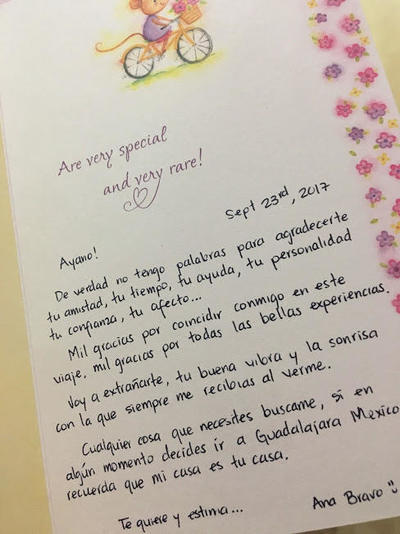 Are very special
and very rare!
Sept 23rd, 2017
Ayano!
De verdad no tengo palabras para agradecerte
tu amistad, tu tiempo, tu ayuda, tu personalidad
tu confianza, tu afecto...
Mil gracias por coincidir conmigo en este
viaje, mil gracias por todas las bellas experiencias.
Voy a extrañarte, tu buena vibra y la sonrisa
con la que siempre me recibías al verme.
Cualquier cosa que necesites buscame, si en
algún momento decides ir a Guadalajara Mexico
recuerda que mi casa es tu casa.
Te quiere y estima...
Ana Bravo